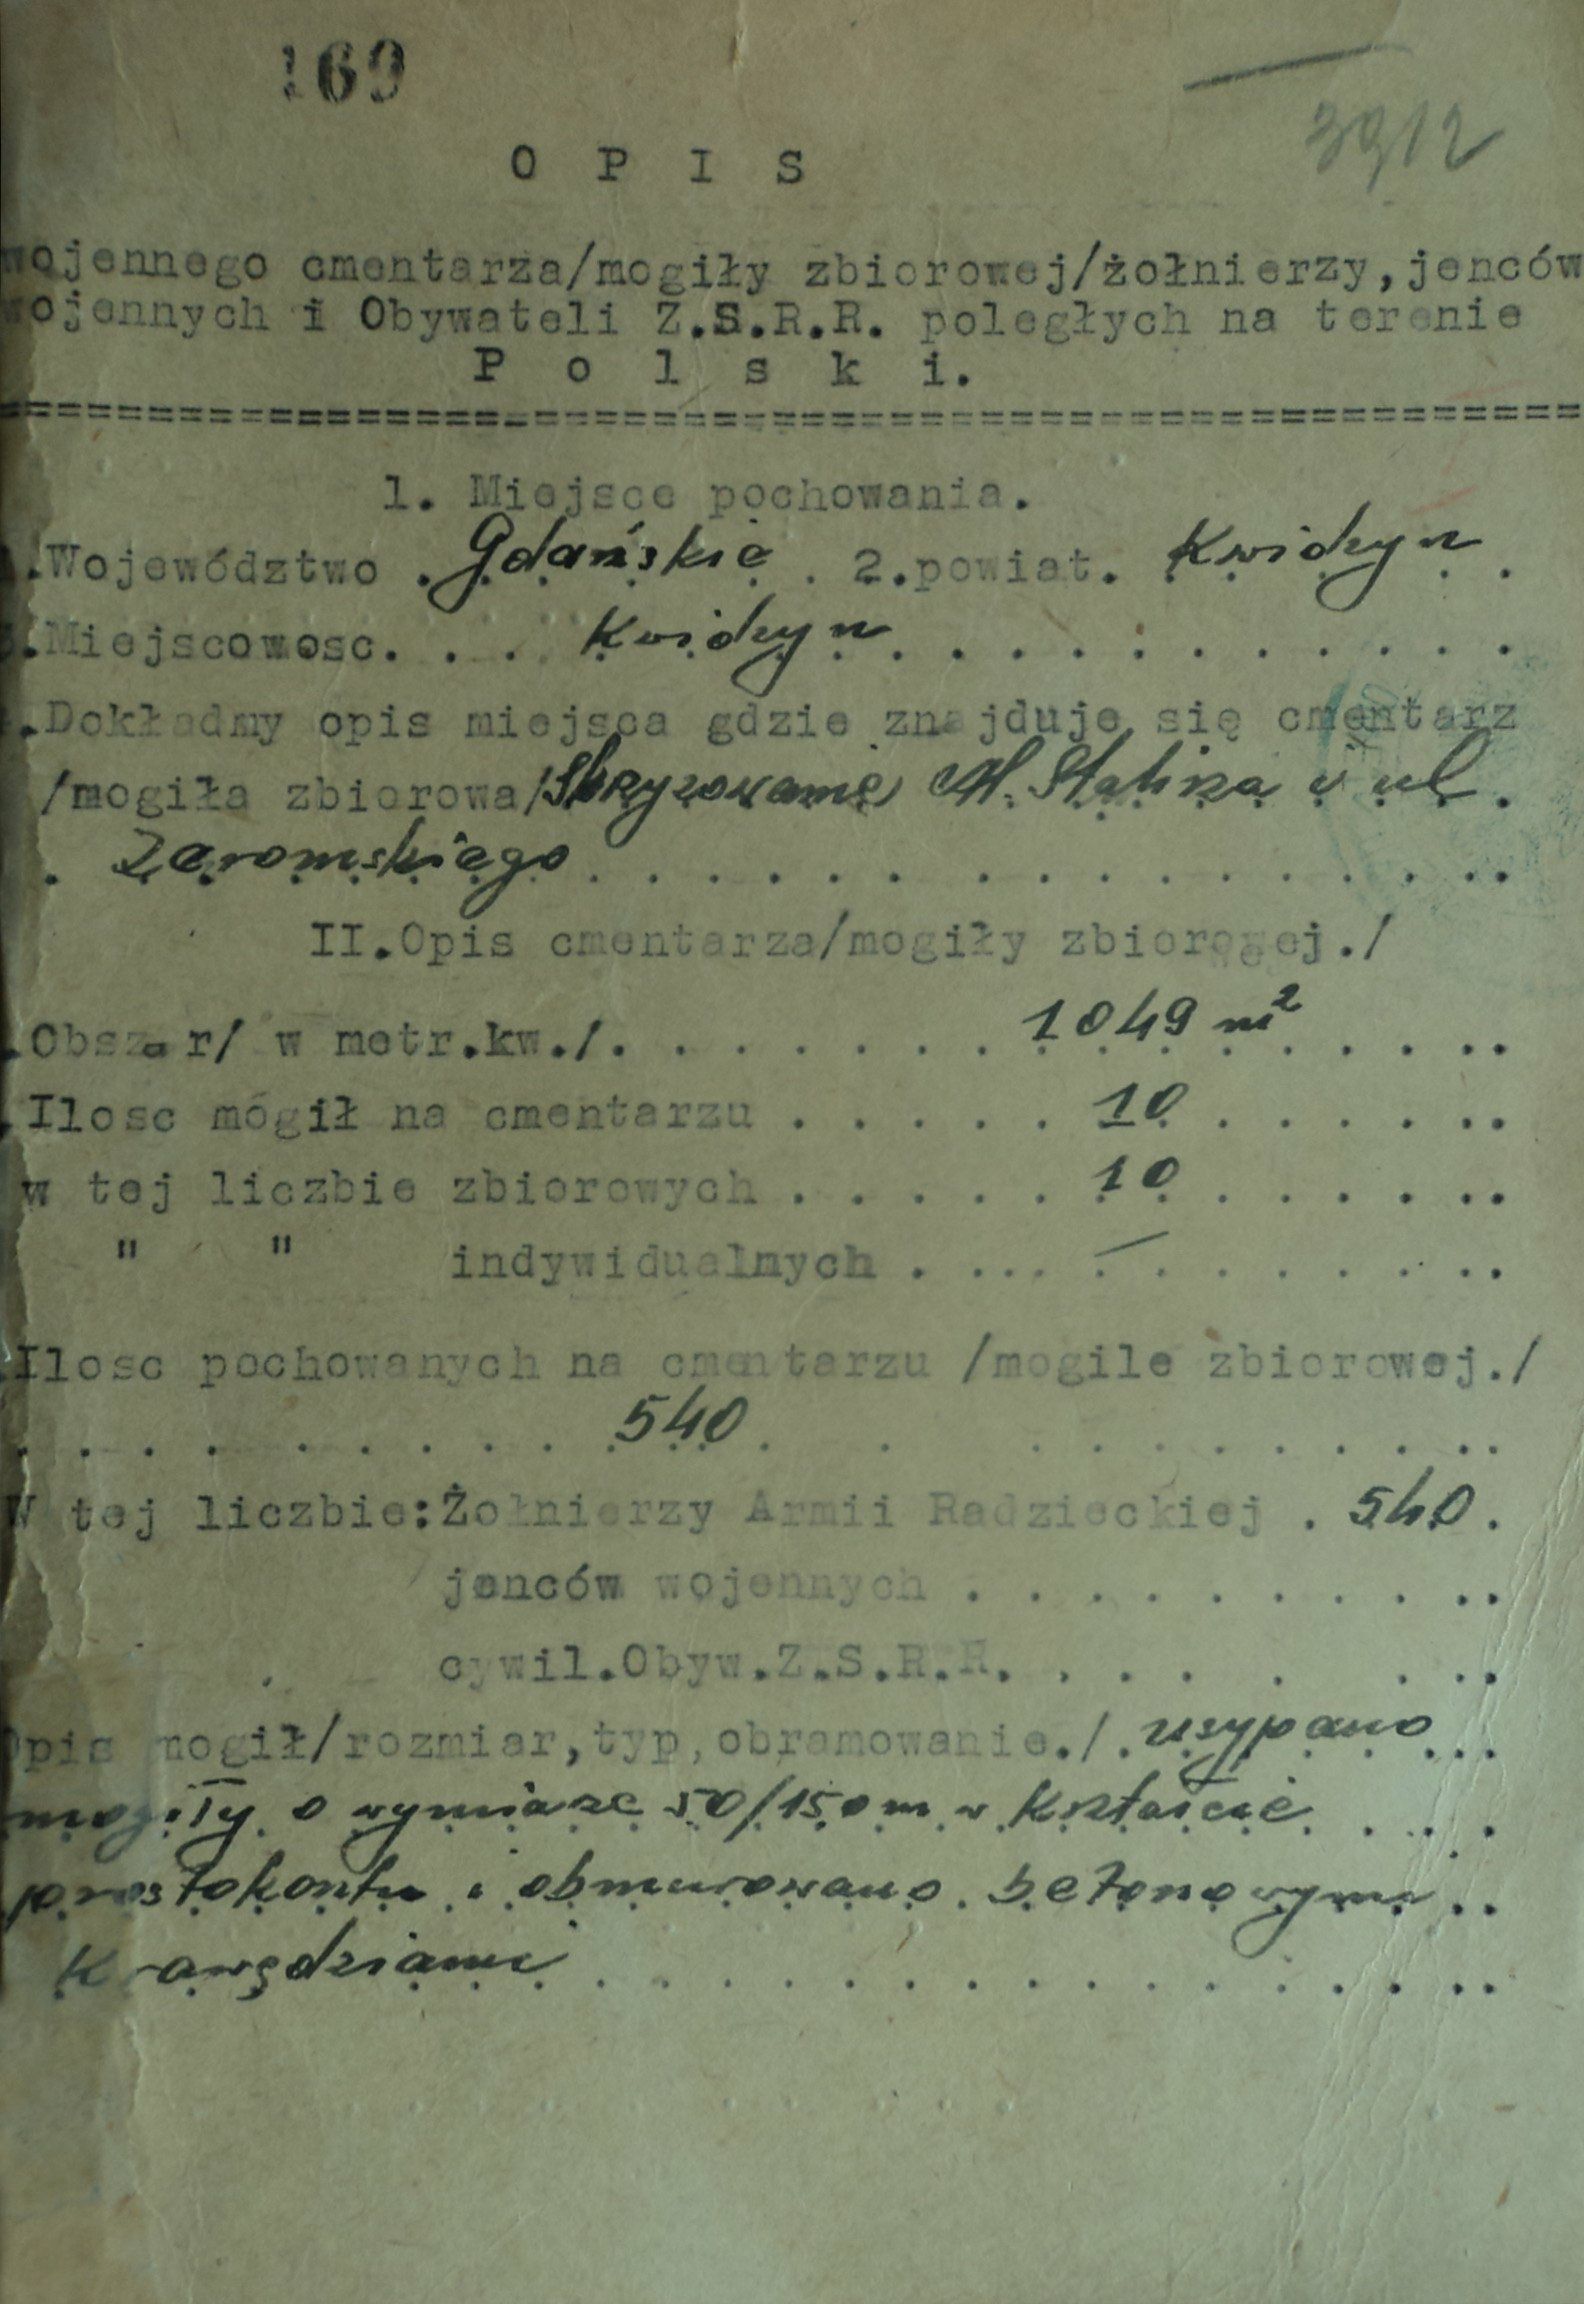 169
3912
O P I S
wojennego cmentarza/mogiły zbiorowej/żołnierzy,jenców
wojennych i Obywateli Z.S.R.R. poległych na terenie
P o l s k i.
1. Miejsce pochowania.
.Województwo . Gdańskie . 2.powiat. Kwidzyn . .
.Miejscowosc. . . . Kwidzyn . . . . . . . . . . .
.Dokładny opis miejsca gdzie znajduje się cmentarz
/mogiła zbiorowa/ Skrzyzowanie Al. Stalina i ul .
. Zeromskiego . . . . . . . . . . . . . . . .
II.Opis cmentarza/mogiły zbiorowej./
.Obszar/ w metr.kw./. . . . . . . 1049 m² . . . . ..
.Ilosc mogił na cmentarzu . . . . . 10 . . . . . ..
w tej liczbie zbiorowych . . . . . 10 . . . . . ..
" " indywidualnych . ... — . . . . . ..
.Ilosc pochowanych na cmentarzu /mogile zbiorowej./
. . . . . . . . . . 540 . . . . . . . . . ..
W tej liczbie:Żołnierzy Armii Radzieckiej . 540 .
jenców wojennych . . . . . . . . ..
cywil.Obyw.Z.S.R.R. . . . . . ..
Opis mogił/rozmiar,typ,obramowanie./ . usypano ...
mogiły o wymiarze 50/150 m w Kształcie . . . .
prostokontu i obmurowano betonowymi ..
Krawędziami . . . . . . . . . . . . . . ..